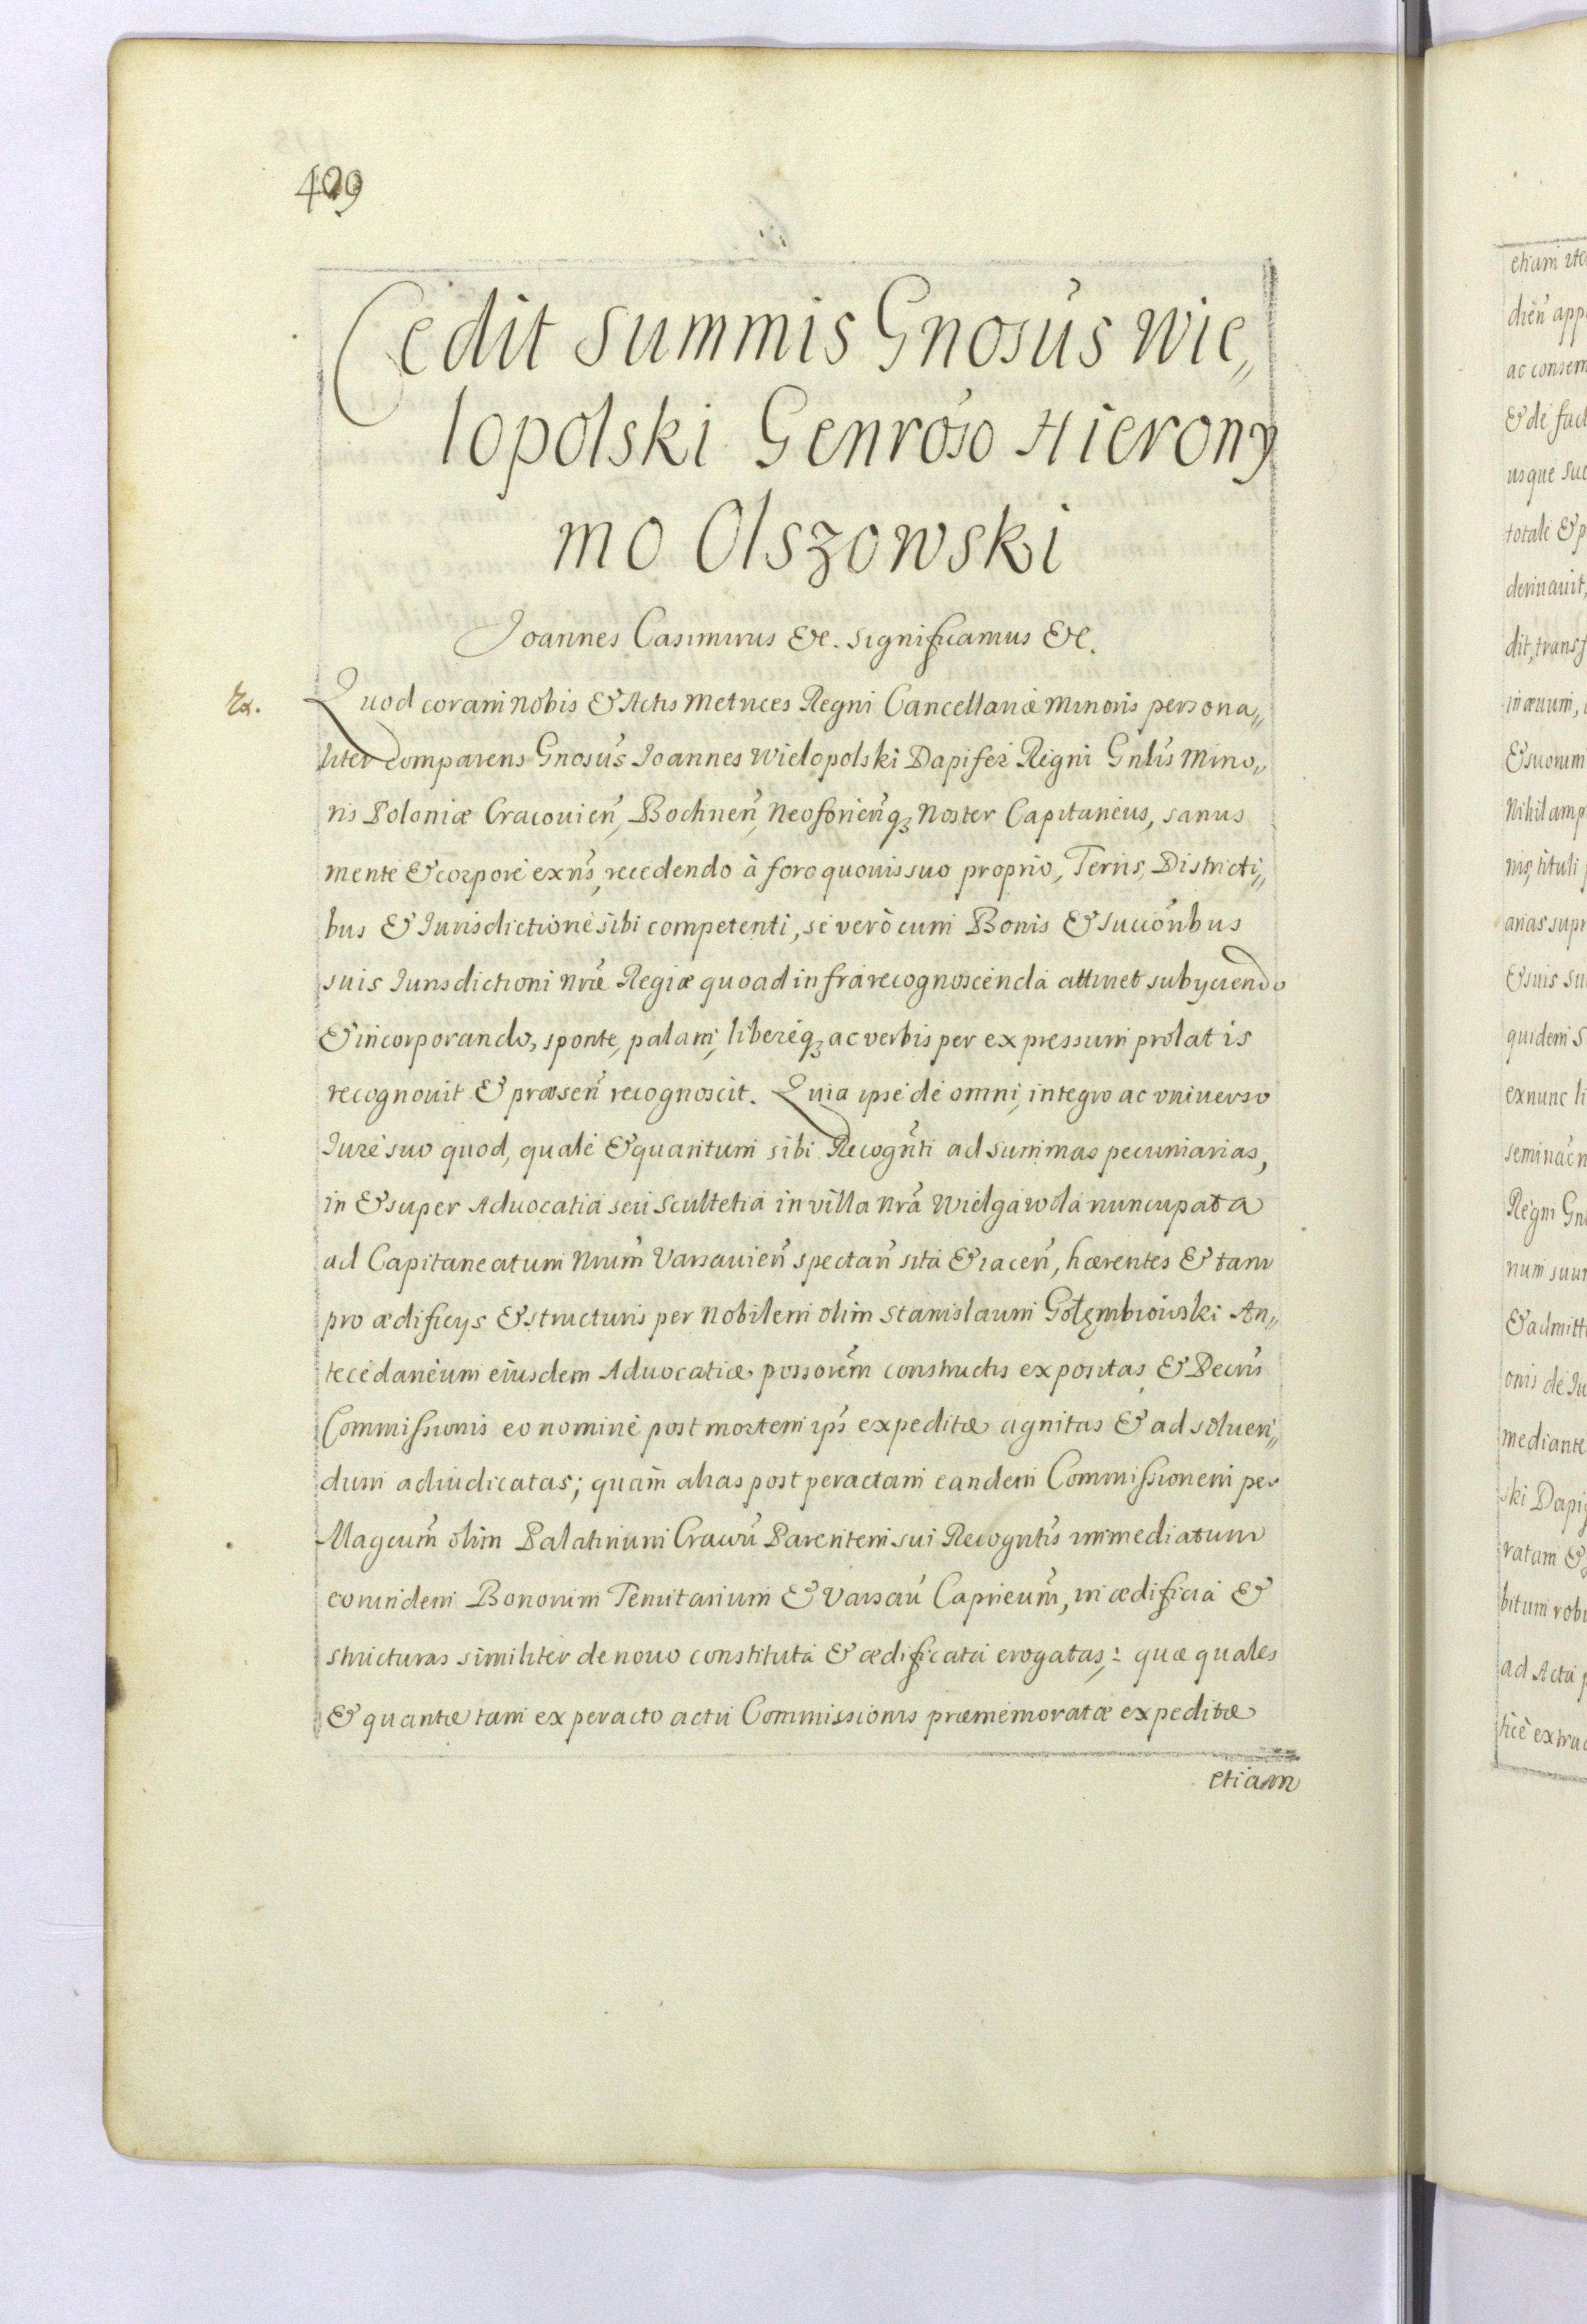 409
Cedit summis Gnosus Wie„
lopolski Genroso Hierony
mo Olszowski
Joannes Casimirus &c. significamus &c.
Ex. Quod coram nobis & Actis Metrices Regni Cancellariæ minoris persona„
liter comparens Gnosus Joannes Wielopolski Dapifer Regni Gnlis Mino„
ris Poloniæ Cracouien, Bochnen, Neoforienq3 Noster Capitaneus, sanus
mente & corpore exns, recedendo à foro quouis suo proprio, Terris, Districti„
bus & Jurisdictione sibi competenti, se verò cum Bonis & succonbus
suis Jurisdictioni nræ Regiæ quoad infra recognoscenda attinet subyciendo
& incorporando, sponte, palam, libereq3 ac verbis per expressum prolatis
recognouit & præsen recognoscit. Quia ipse de omni, integro ac vniuerso
Jure suo quod, quale & quantum sibi Recognti ad summas pecuniarias,
in & super Aduocatia seu Scultetia in villa nra Wielgawola nuncupata
ad Capitaneatum Nrum Varsauien spectan sita & iacen, hærentes & tam
pro ædificys & structuris per Nobilem olim Stanislaum Gołembiowski An„
tecedaneum eiusdem Aduocatiæ possorem constructis expositas & Decris
Commissionis eo nomine post mortem ips expeditæ agnitas & ad soluen„
dum adiudicatas; quam alias post peractam eandem Commissionem per
Magcum olim Palatinum Cracuu Parentem sui Recogntis immediatum
eorundem Bonorum Tenutarium & Varsau Capneum, in ædificia &
structuras similiter de nouo constituta & ædificata erogatas; quæ quales
& quantæ tam ex peracto actu Commissionis præmemoratæ expeditæ
etiam